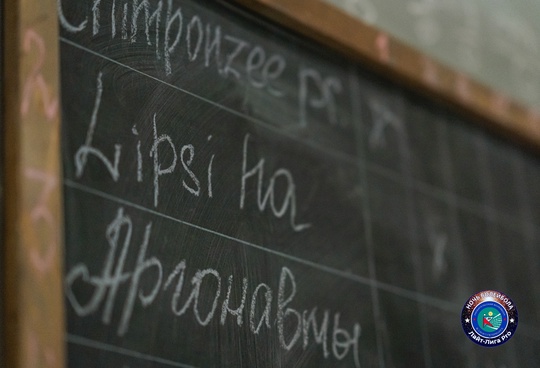 Chimponzee pr.
Lipsi ha
Аргонавты
НОЧЬ ВОЛЕЙБОЛА
Лайт-Лига Pro